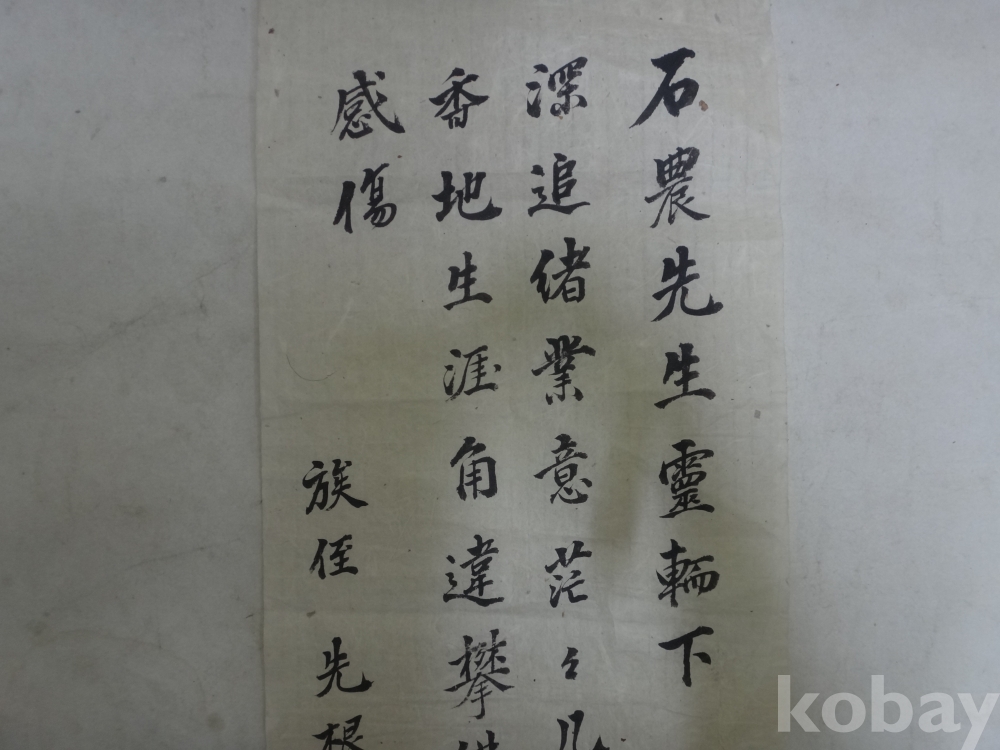 石農先生靈輀下
深追緒業意茫々
香地生涯角違攀
感傷
族侄 先根
kobay